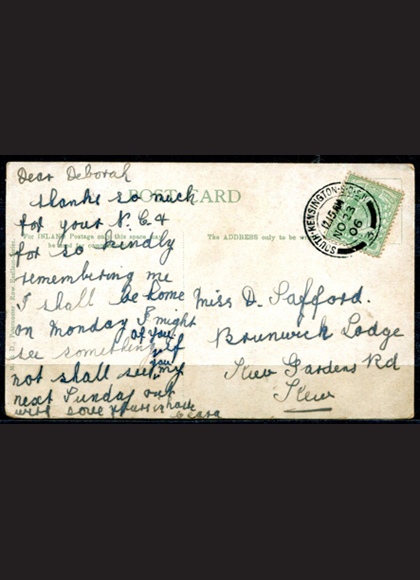 Dear Deborah
thanks so much
for your P.C. &
for so kindly
remembering me
I shall be home
on Monday I might
see something of you
if
you
not shall see my
next Sunday out
with love yours in haste
Clara
POST CARD
For INLAND Postage only this space may
be used for
The ADDRESS only to be
SOUTH-KENSINGTON
12.15 AM
NO 23
06
Miss D. Safford.
Brunswick Lodge
Kew Gardens Rd
Kew